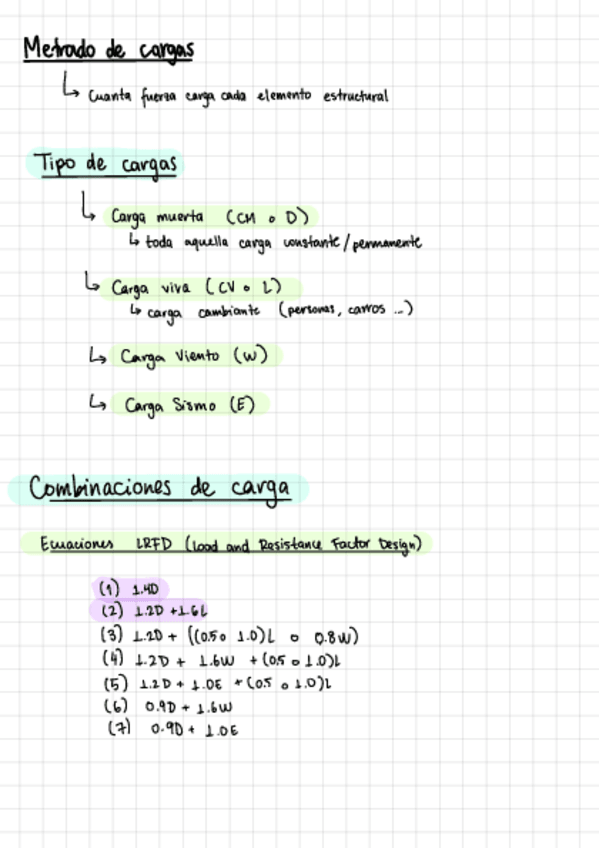 Metrado de cargas
↳ Cuanta fuerza carga cada elemento estructural
Tipo de cargas
↳ Carga muerta (CM o D)
↳ toda aquella carga constante/permanente
↳ Carga viva (CV o L)
↳ carga cambiante (personas, carros ...)
↳ Carga Viento (W)
↳ Carga Sismo (E)
Combinaciones de carga
Ecuaciones LRFD (Load and Resistance Factor Design)
(1) 1.4D
(2) 1.2D + 1.6L
(3) 1.2D + ((0.5 o 1.0)L o 0.8W)
(4) 1.2D + 1.6W + (0.5 o 1.0)L
(5) 1.2D + 1.0E + (0.5 o 1.0)L
(6) 0.9D + 1.6W
(7) 0.9D + 1.0E